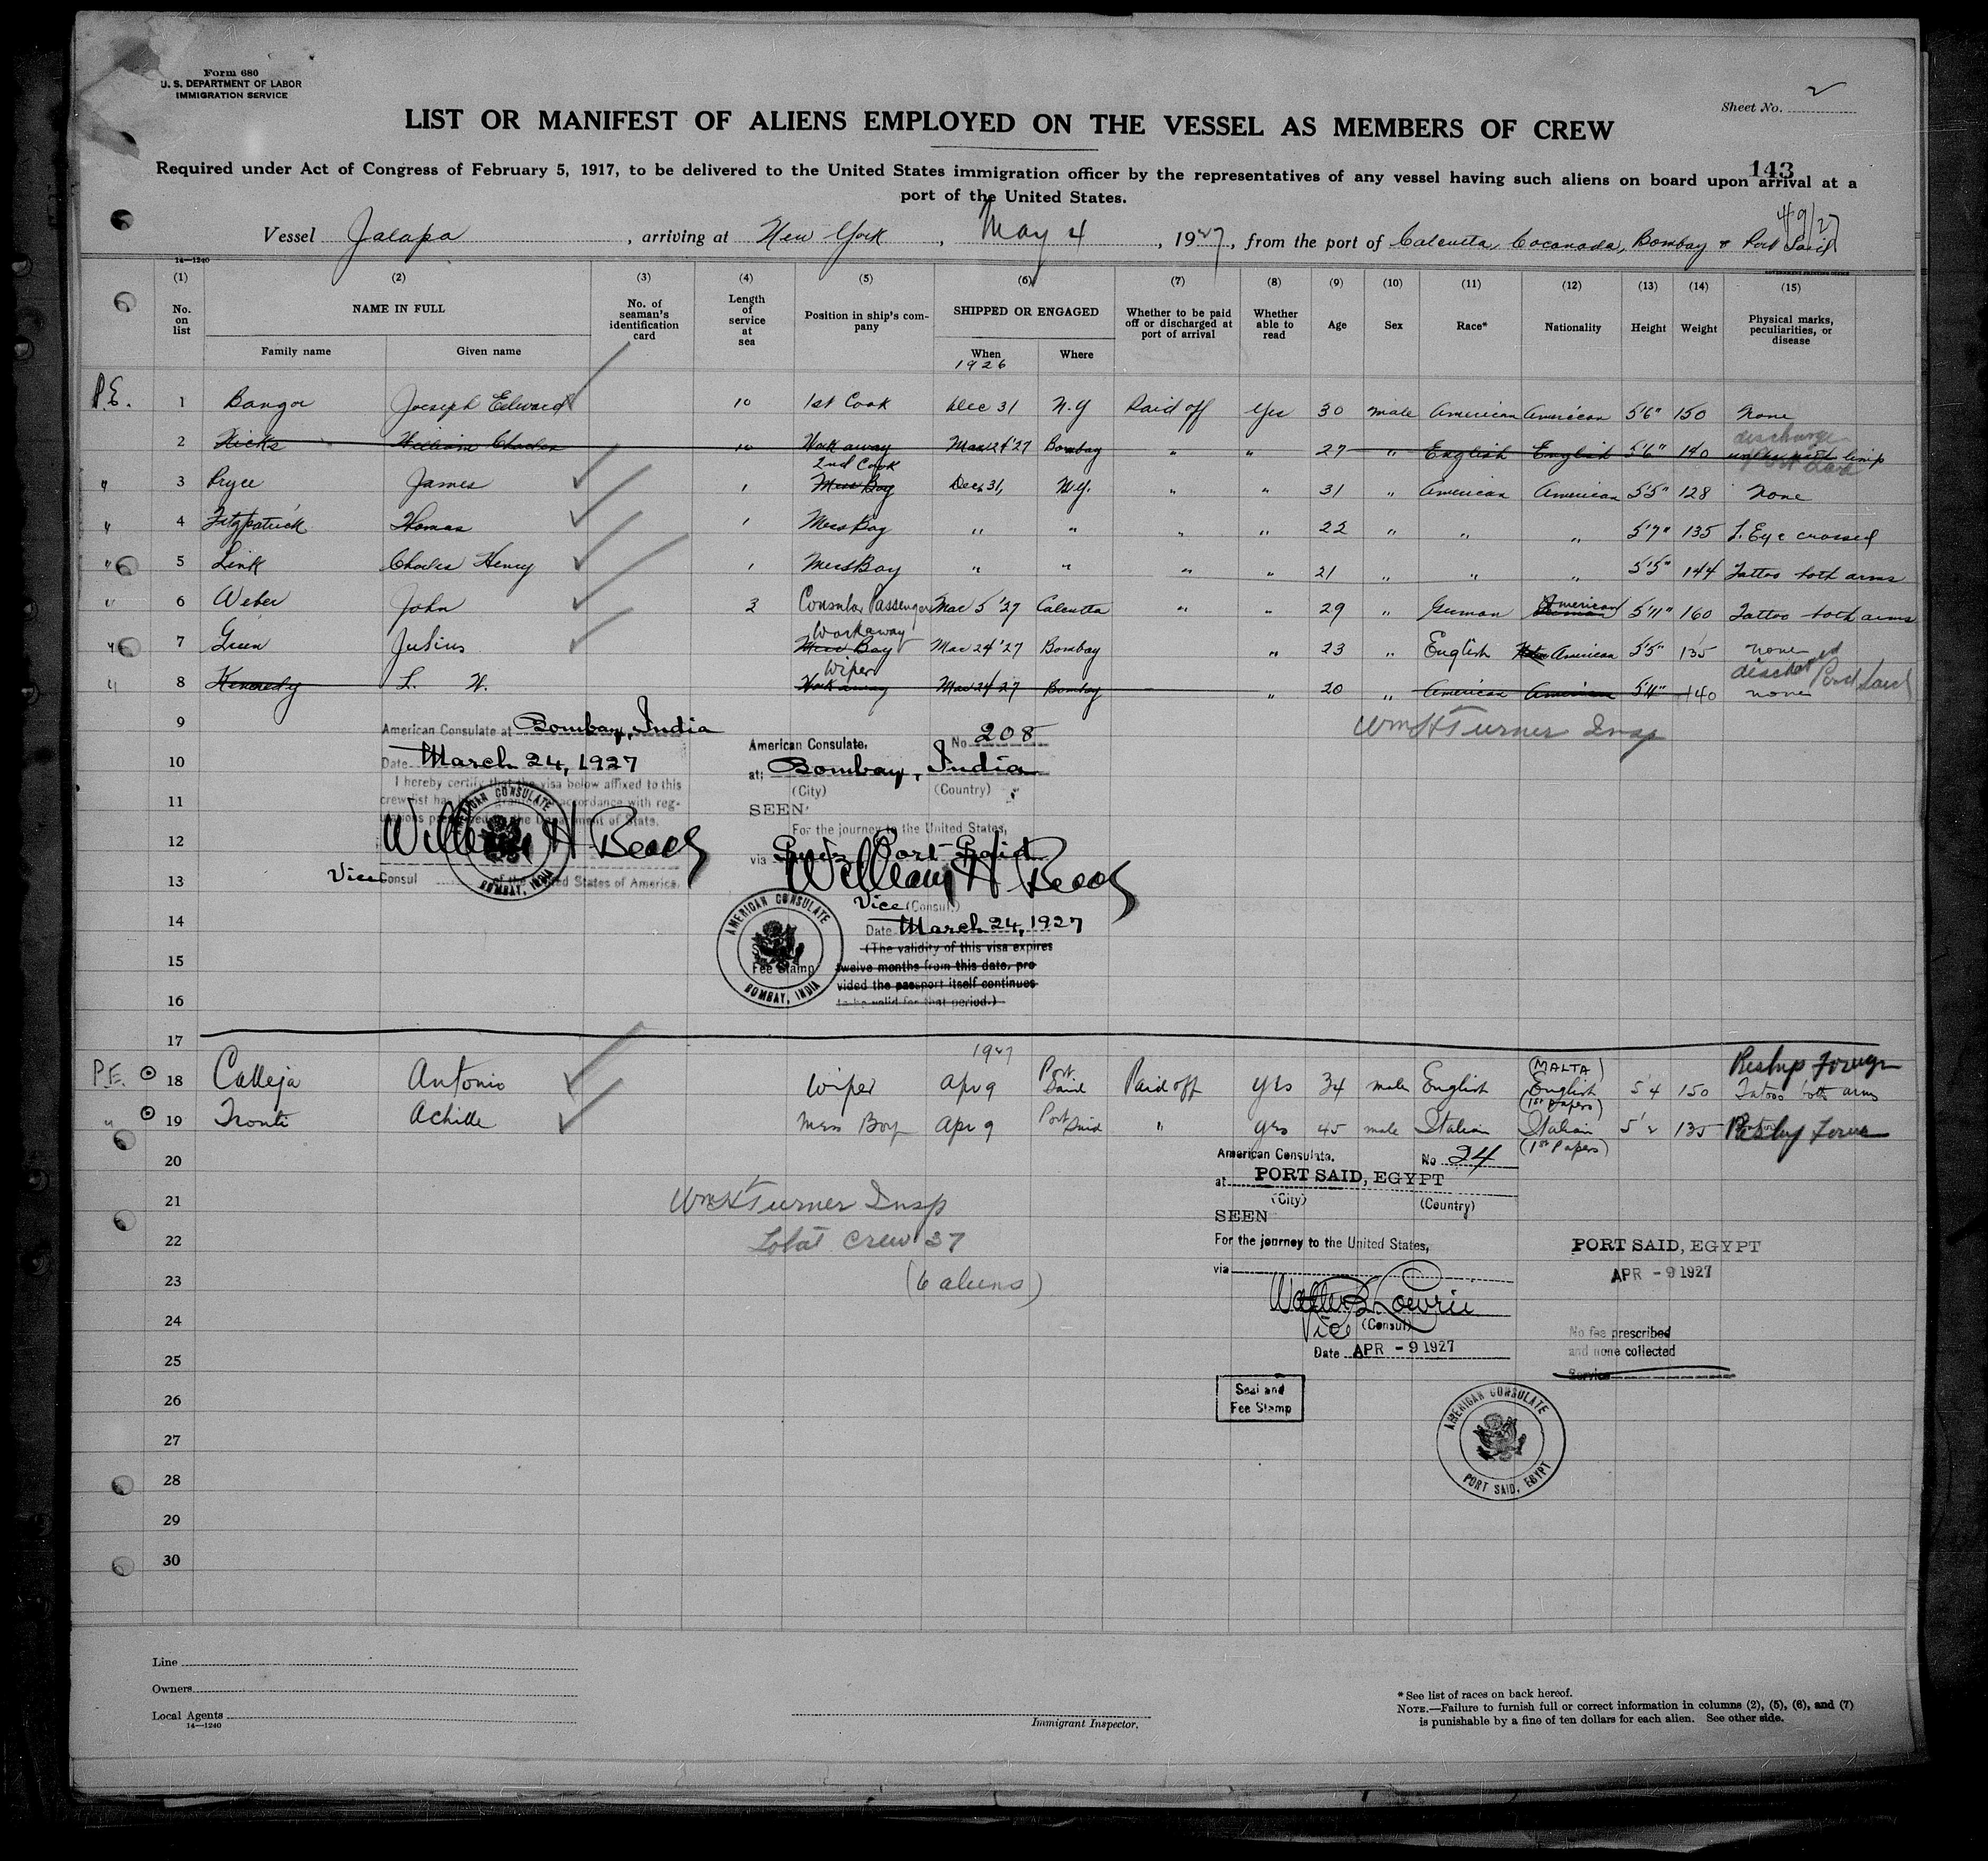 Form 680
U. S. DEPARTMENT OF LABOR
IMMIGRATION SERVICE
Sheet No. 2
LIST OR MANIFEST OF ALIENS EMPLOYED ON THE VESSEL AS MEMBERS OF CREW
143
Required under Act of Congress of February 5, 1917, to be delivered to the United States immigration officer by the representatives of any vessel having such aliens on board upon arrival at a
port of the United States.
4/9/27
Vessel Jalapa, arriving at New York, May 4, 1927, from the port of Calcutta, Cocanada, Bombay & Port Said
14—1240
(1) (2) (3) (4) (5) (6) (7) (8) (9) (10) (11) (12) (13) (14) (15)
No. on list NAME IN FULL Family name Given name No. of seaman's identification card Length of service at sea Position in ship's company SHIPPED OR ENGAGED When 1926 Where Whether to be paid off or discharged at port of arrival Whether able to read Age Sex Race* Nationality Height Weight Physical marks, peculiarities, or disease
P.E. 1 Bangor Joeseph Edward 10 1st Cook Dec 31 N.Y Paid off Yes 30 male American American 5'6" 150 None
2 Hicks William Charles 10 Workaway Mar 24 '27 Bombay " " 27 " English English 5'6" 140 discharge limp
" 3 Pryce James 1 2nd Cook Mess Boy Dec 31, N.Y. " " 31 " American American 5'5" 128 None
" 4 Fitzpatrick Thomas 1 Mess Boy " " " " 22 " " " 5'7" 135 L. Eye crossed
" 5 Link Charles Henry 1 Mess Boy " " " " 21 " " " 5'5" 144 Tattoo both arms
" 6 Weber John 2 Consular Passenger Mar 5 '27 Calcutta " " 29 " German American 5'11" 160 Tattoo both arms
" 7 Green Julius Workaway Mess Boy Mar 24 '27 Bombay " 23 " English American 5'5" 135 none
" 8 Kennedy L. W. Wiper Workaway Mar 24 27 Bombay " 20 " American American 5'11" 140 none discharged Port Said
Wm H Turner Insp
9
10
11
12
13
14
15
16
17
American Consulate at Bombay, India
Date March 24, 1927
I hereby certify that the visa below affixed to this
crew list has been granted in accordance with reg-
ulations prescribed by the Department of State.
William H Beach
Vice Consul of the United States of America.
AMERICAN CONSULATE
BOMBAY, INDIA
American Consulate, No 208
at: Bombay, India
(City) (Country)
SEEN
For the journey to the United States,
via Suez Port Said
William H Beach
Vice (Consul)
Date March 24, 1927
(The validity of this visa expires
twelve months from this date, pro
vided the passport itself continues
to be valid for that period.)
Fee Stamp
AMERICAN CONSULATE
BOMBAY, INDIA
1927
P.E. 18 Calleja Antonio Wiper Apr 9 Port Said Paid off yes 34 male English (MALTA) English (1st Papers) 5'4 150 Reship Foreign Tatoos both arms
" 19 Tronti Achille Mess Boy Apr 9 Port Said " yes 45 male Italian Italian (1st Papers) 5'2 135 Reship Foreign
20
21
22
23
24
25
26
27
28
29
30
Wm H Turner Insp
Total crew 37
(6 aliens)
American Consulate, No 24
at PORT SAID, EGYPT
(City) (Country)
SEEN
For the journey to the United States,
via
Walter B Lowrie
Vice (Consul)
Date APR - 9 1927
Seal and
Fee Stamp
PORT SAID, EGYPT
APR - 9 1927
No fee prescribed
and none collected
Service
AMERICAN CONSULATE
PORT SAID, EGYPT
Line
Owners
Local Agents
14—1240
Immigrant Inspector.
* See list of races on back hereof.
NOTE.—Failure to furnish full or correct information in columns (2), (5), (6), and (7)
is punishable by a fine of ten dollars for each alien. See other side.